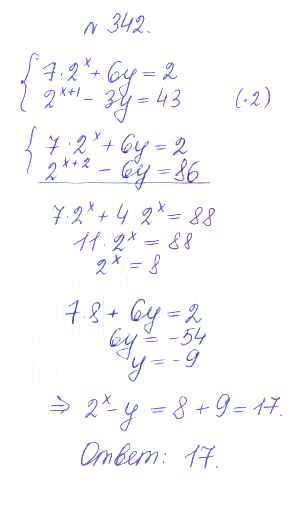 № 342.
7·2ˣ + 6y = 2
2ˣ⁺¹ - 3y = 43 (·2)
7·2ˣ + 6y = 2
2ˣ⁺² - 6y = 86
7·2ˣ + 4 2ˣ = 88
11·2ˣ = 88
2ˣ = 8
7·8 + 6y = 2
6y = -54
y = -9
⇒ 2ˣ - y = 8 + 9 = 17.
Ответ: 17.